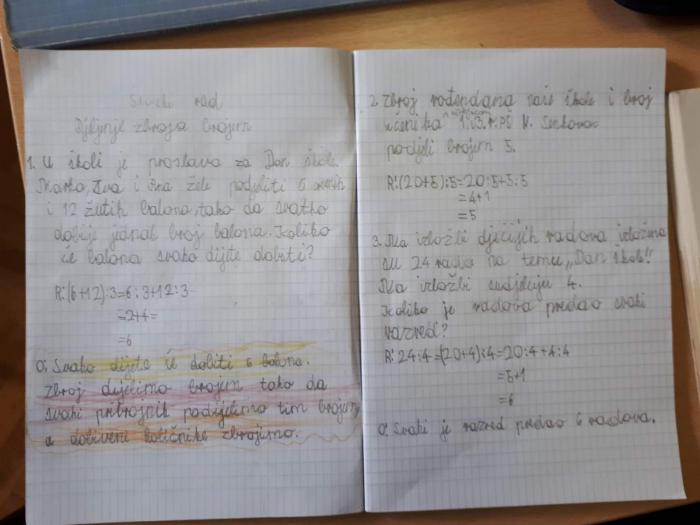 Školski rad
Dijeljenje zbroja brojem
1. U školi je proslava za Dan škole.
Marko, Iva i Ana žele podijeliti 6 
i 12 žutih balona, tako da svatko
dobije jednak broj balona. Koliko
će balona svako dijete dobiti?
R:(6+12):3=6:3+12:3
=2+4=
=6
O: Svako dijete će dobiti 6 balona.
Zbroj dijelimo brojem tako da
svaki pribrojnik podijelimo tim brojem,
a dobivene količnike zbrojimo.
2. Zbroj rođendana naše škole i broj
učenika 1. i 3. r. PŠ
podijeli brojem 5.
R:(20+5):5=20:5+5:5
=4+1
=5
3. Na izložbi dječjih radova izložena
su 24 rada na temu „Dan škole!"
Na izložbi sudjeluju 4.
Koliko je radova predao svaki
razred?
R:24:4=(20+4):4=20:4+4:4
=5+1
=6
O: Svaki je razred predao 6 radova.